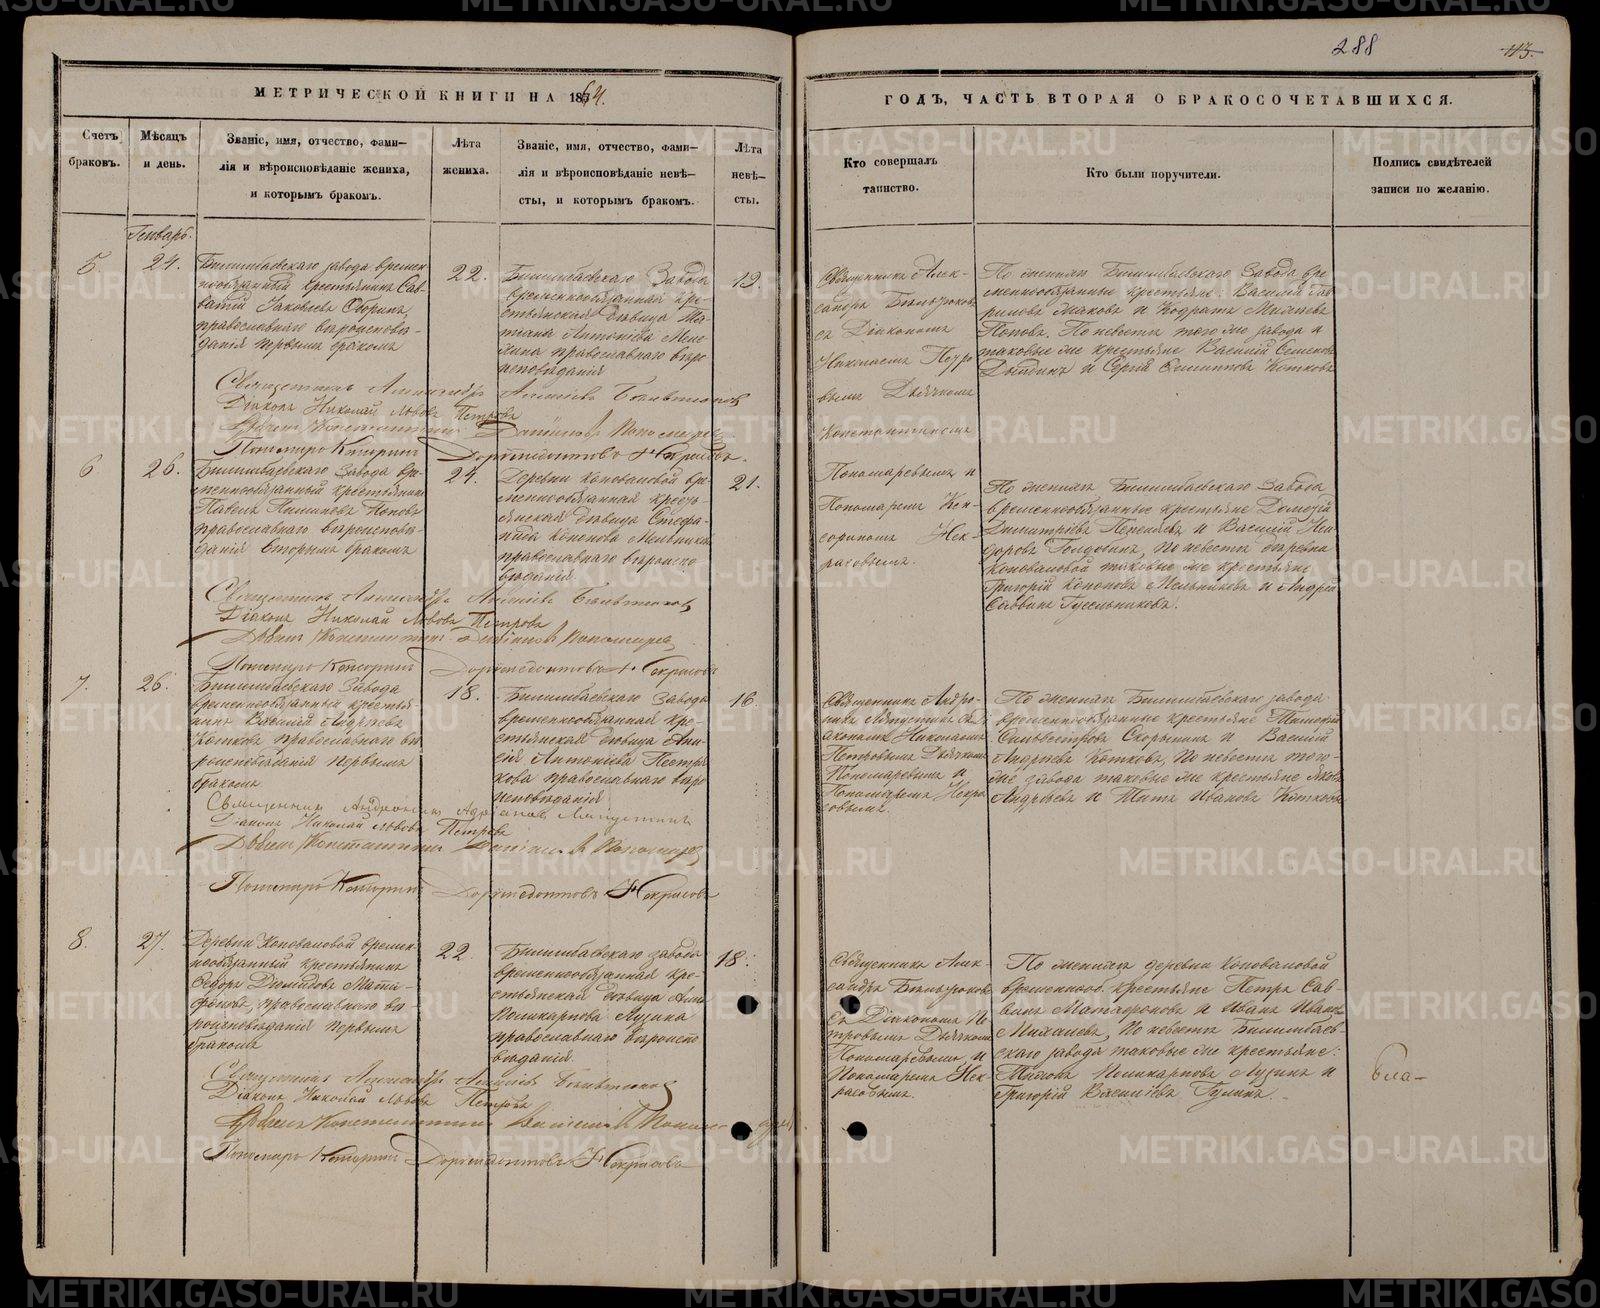 288
113.
МЕТРИЧЕСКОЙ КНИГИ НА 1864.
ГОДЪ, ЧАСТЬ ВТОРАЯ О БРАКОСОЧЕТАВШИХСЯ.
Счетъ браковъ.
Мѣсяцъ и день.
Званіе, имя, отчество, фами–
лія и вѣроисповѣданіе жениха,
и которымъ бракомъ.
Лѣта жениха.
Званіе, имя, отчество, фами–
лія и вѣроисповѣданіе невѣ–
сты, и которымъ бракомъ.
Лѣта невѣ–
сты.
Кто совершалъ
таинство.
Кто были поручители.
Подпись свидѣтелей
записи по желанію.
Генварь.
5.
24.
Билимбаевскаго завода времен
нообязанный крестьянинъ Сав-
ватій Іаковлевъ
православнаго вѣроисповѣ-
данія первымъ бракомъ
22.
Билимбаевскаго Завода
временнообязанная кре-
стьянская дѣвица Та-
тіана Антонова
православнаго вѣро
исповѣданія
19.
Священникъ Алек-
сандръ
съ Діакономъ
Николаемъ Петро
вымъ Дьячкомъ
Константиномъ
Пономаревымъ и
Пономаремъ Кен-
сориномъ Нек-
расовымъ.
По женихѣ Билимбаевскаго Завода вре
меннообязанные крестьяне: Василій Гав
риловъ и Кодратъ
Поповъ. По невѣстѣ того же завода и
таковые же крестьяне Василій Семеновъ
и Сергій Котковъ
Священникъ Александръ Алексіевъ
Діаконъ Николай Львовъ Петровъ
Дьячекъ Константинъ Пономаревъ
Пономарь Кенсоринъ Дормедонтовъ Некрасовъ.
6.
26.
Билимбаевскаго Завода вре
меннообязанный крестьянинъ
Павелъ Поповъ
православнаго вѣроисповѣ-
данія вторымъ бракомъ
24.
Деревни Коноваловой вре
меннообязанная кресть-
янская дѣвица Стефа-
нида Кононова Мельникова
православнаго вѣроиспо
вѣданія.
21.
По женихѣ Билимбаевскаго Завода
временнообязанные крестьяне
Димитріевъ и Василій
По невѣстѣ деревни
Коноваловой таковые же крестьяне
Григорій Кононовъ Мельниковъ и Андрей
Саввинъ Гусельниковъ.
Священникъ Александръ Алексіевъ
Діаконъ Николай Львовъ Петровъ
Дьячекъ Константинъ Пономаревъ
Пономарь Кенсоринъ Дормедонтовъ Некрасовъ
7.
26.
Билимбаевскаго Завода
временнообязанный крестья-
нинъ Василій Андреевъ
Котковъ православнаго вѣ
роисповѣданія первымъ
бракомъ
18.
Билимбаевскаго Завода
временнообязанная кре-
стьянская дѣвица
Антонова Пестри
кова православнаго вѣро
исповѣданія
16.
Священникъ Андро-
никъ Ляпустинъ съ Ді
акономъ Николаемъ
Петровымъ Дьячкомъ
Пономаревымъ и
Пономаремъ Некра
совымъ.
По женихѣ Билимбаевскаго завода
временнообязанные крестьяне Тимофей
Сильвестровъ Скорынинъ и Василій
Андреевъ Котковъ, По невѣстѣ того-
же завода таковые же крестьяне Яковъ
Андреевъ и Титъ Ивановъ Котковы
Священникъ Андроникъ Адріановъ Ляпустинъ
Діаконъ Николай Львовъ Петровъ
Дьячекъ Константинъ Пономаревъ
Пономарь Кенсоринъ Дормедонтовъ Некрасовъ
8.
27.
Деревни Коноваловой времен-
нообязанный крестьянинъ
Ѳедоръ Діомидовъ Мата-
фоновъ, православнаго вѣ-
роисповѣданія первымъ
бракомъ
22.
Билимбаевскаго завода
временнообязанная кре-
стьянская дѣвица Анна
Поликарпова Лузина
православнаго вѣроиспо
вѣданія.
18.
Священникъ Алек-
сандръ
съ Діакономъ Пе-
тровымъ Дьячкомъ
Пономаревымъ и
Пономаремъ Нек-
расовымъ.
По женихѣ деревни Коноваловой
временнооб. крестьяне Петръ Сав-
винъ Матафоновъ и Иванъ Ивановъ
Михалевъ, По невѣстѣ Билимбаев-
скаго завода таковые же крестьяне:
Поликарповъ Лузинъ и
Григорій Василіевъ Гулинъ.
Священникъ Александръ Алексіевъ
Діаконъ Николай Львовъ Петровъ
Дьячекъ Константинъ
Пономарь Кенсоринъ Дормедонтовъ Некрасовъ
METRIKI.GASO-URAL.RU